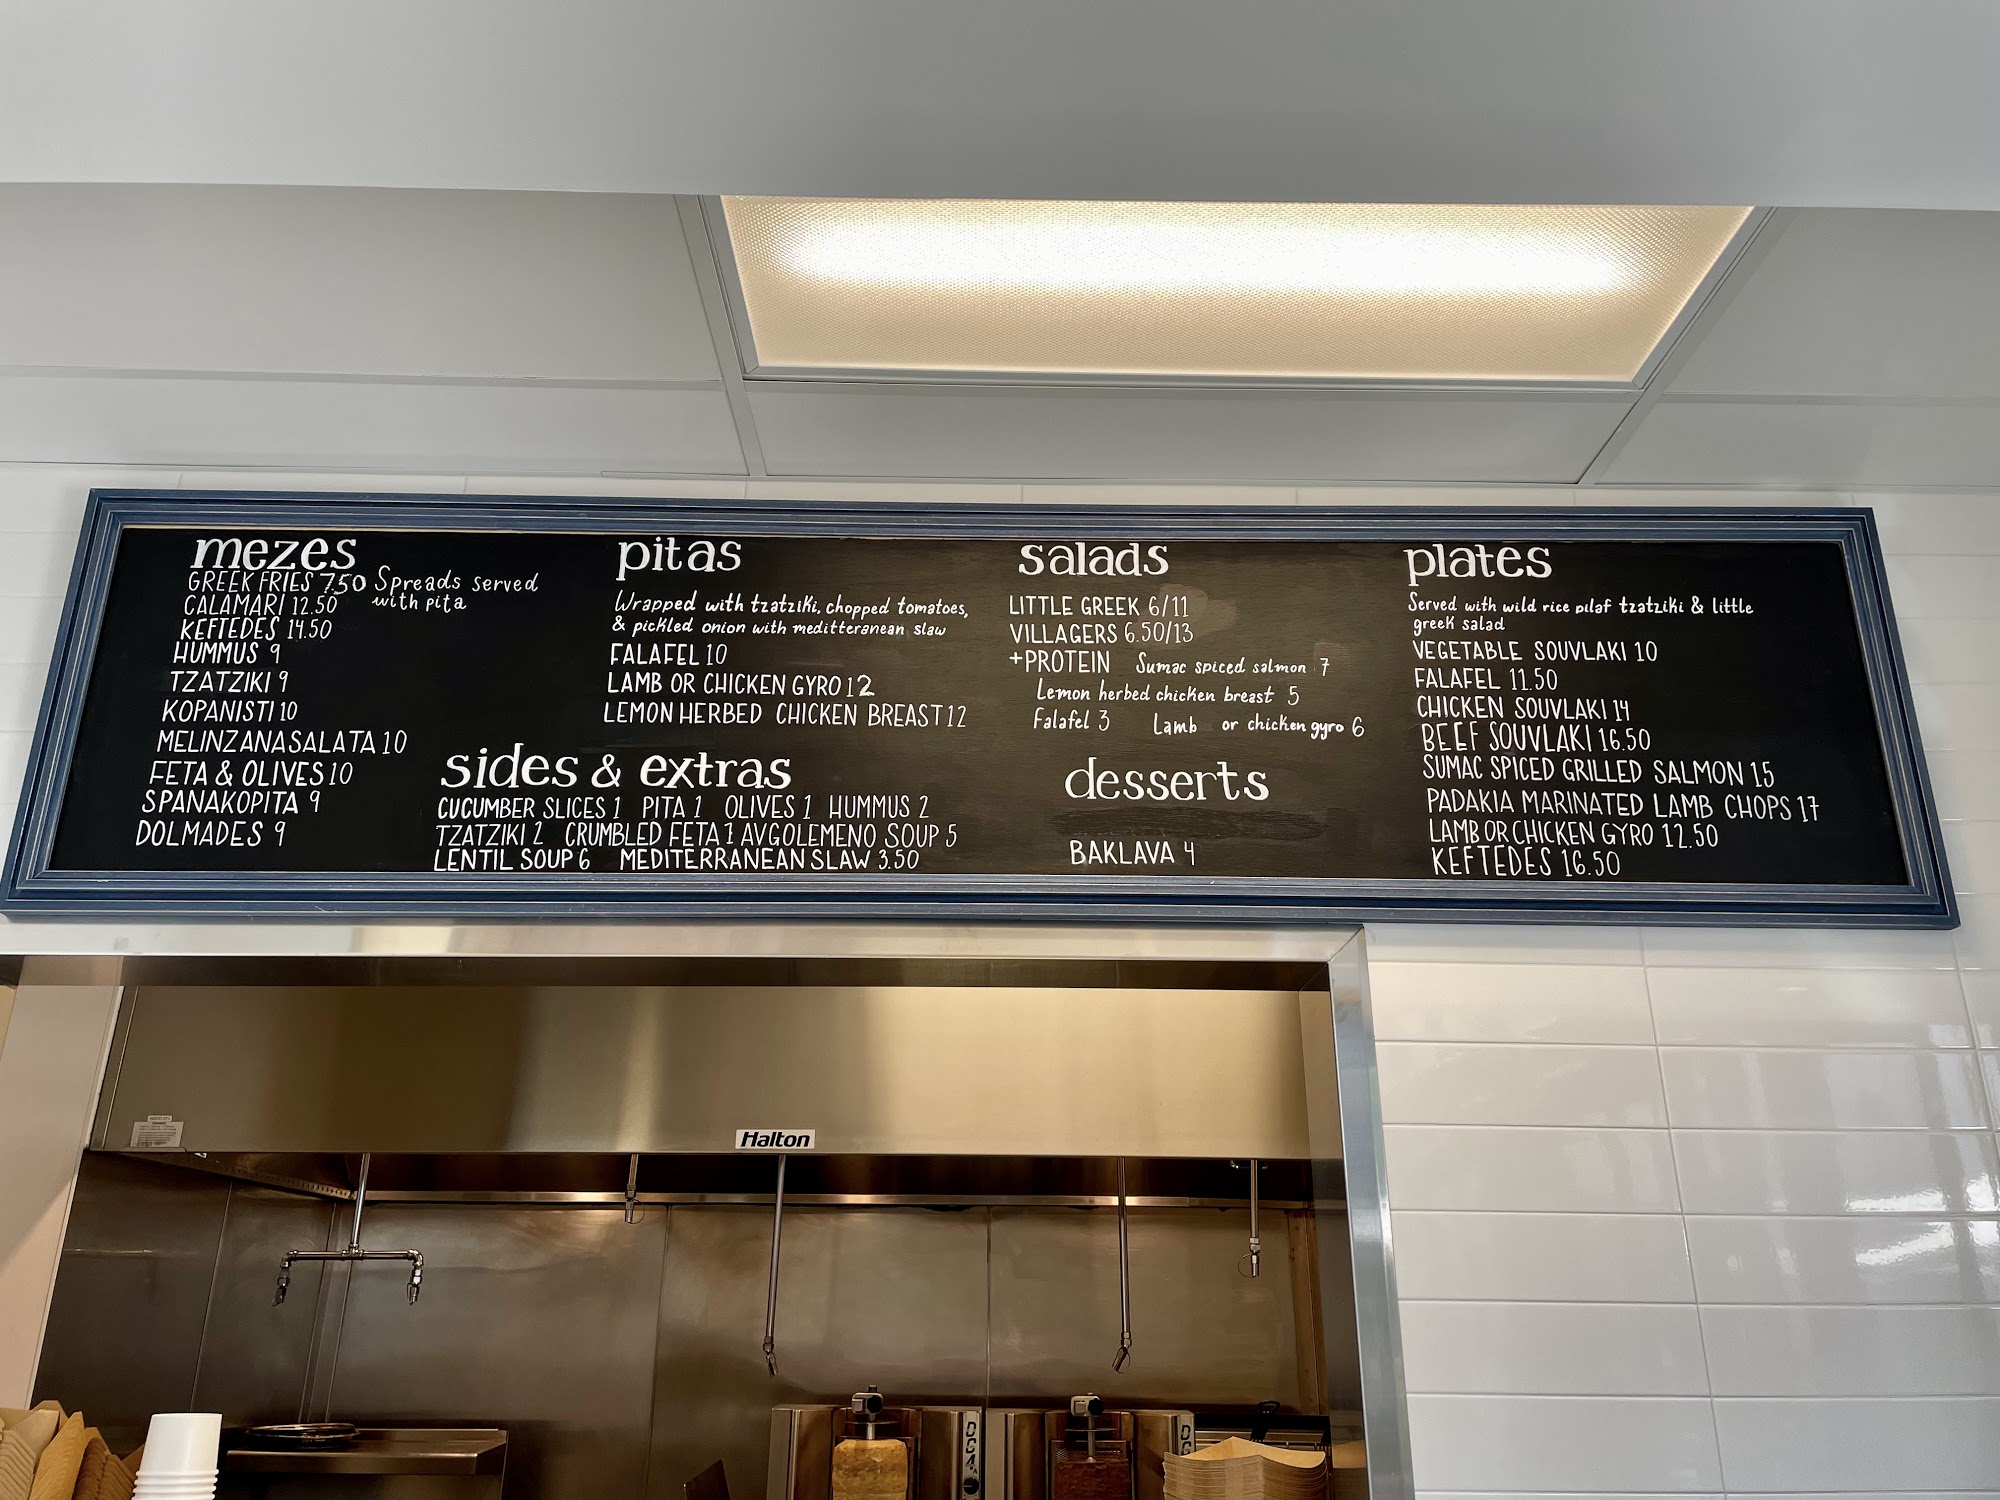 mezes
GREEK FRIES 7.50 Spreads served
with pita
CALAMARI 12.50
KEFTEDES 14.50
HUMMUS 9
TZATZIKI 9
KOPANISTI 10
MELINZANASALATA 10
FETA & OLIVES 10
SPANAKOPITA 9
DOLMADES 9
pitas
Wrapped with tzatziki, chopped tomatoes,
& pickled onion with meditteranean slaw
FALAFEL 10
LAMB OR CHICKEN GYRO 12
LEMON HERBED CHICKEN BREAST 12
sides & extras
CUCUMBER SLICES 1 PITA 1 OLIVES 1 HUMMUS 2
TZATZIKI 2 CRUMBLED FETA 1 AVGOLEMENO SOUP 5
LENTIL SOUP 6 MEDITERRANEAN SLAW 3.50
salads
LITTLE GREEK 6/11
VILLAGERS 6.50/13
+PROTEIN Sumac spiced salmon 7
Lemon herbed chicken breast 5
Falafel 3 Lamb or chicken gyro 6
desserts
BAKLAVA 4
plates
Served with wild rice pilaf tzatziki & little
greek salad
VEGETABLE SOUVLAKI 10
FALAFEL 11.50
CHICKEN SOUVLAKI 14
BEEF SOUVLAKI 16.50
SUMAC SPICED GRILLED SALMON 15
PADAKIA MARINATED LAMB CHOPS 17
LAMB OR CHICKEN GYRO 12.50
KEFTEDES 16.50
Halton